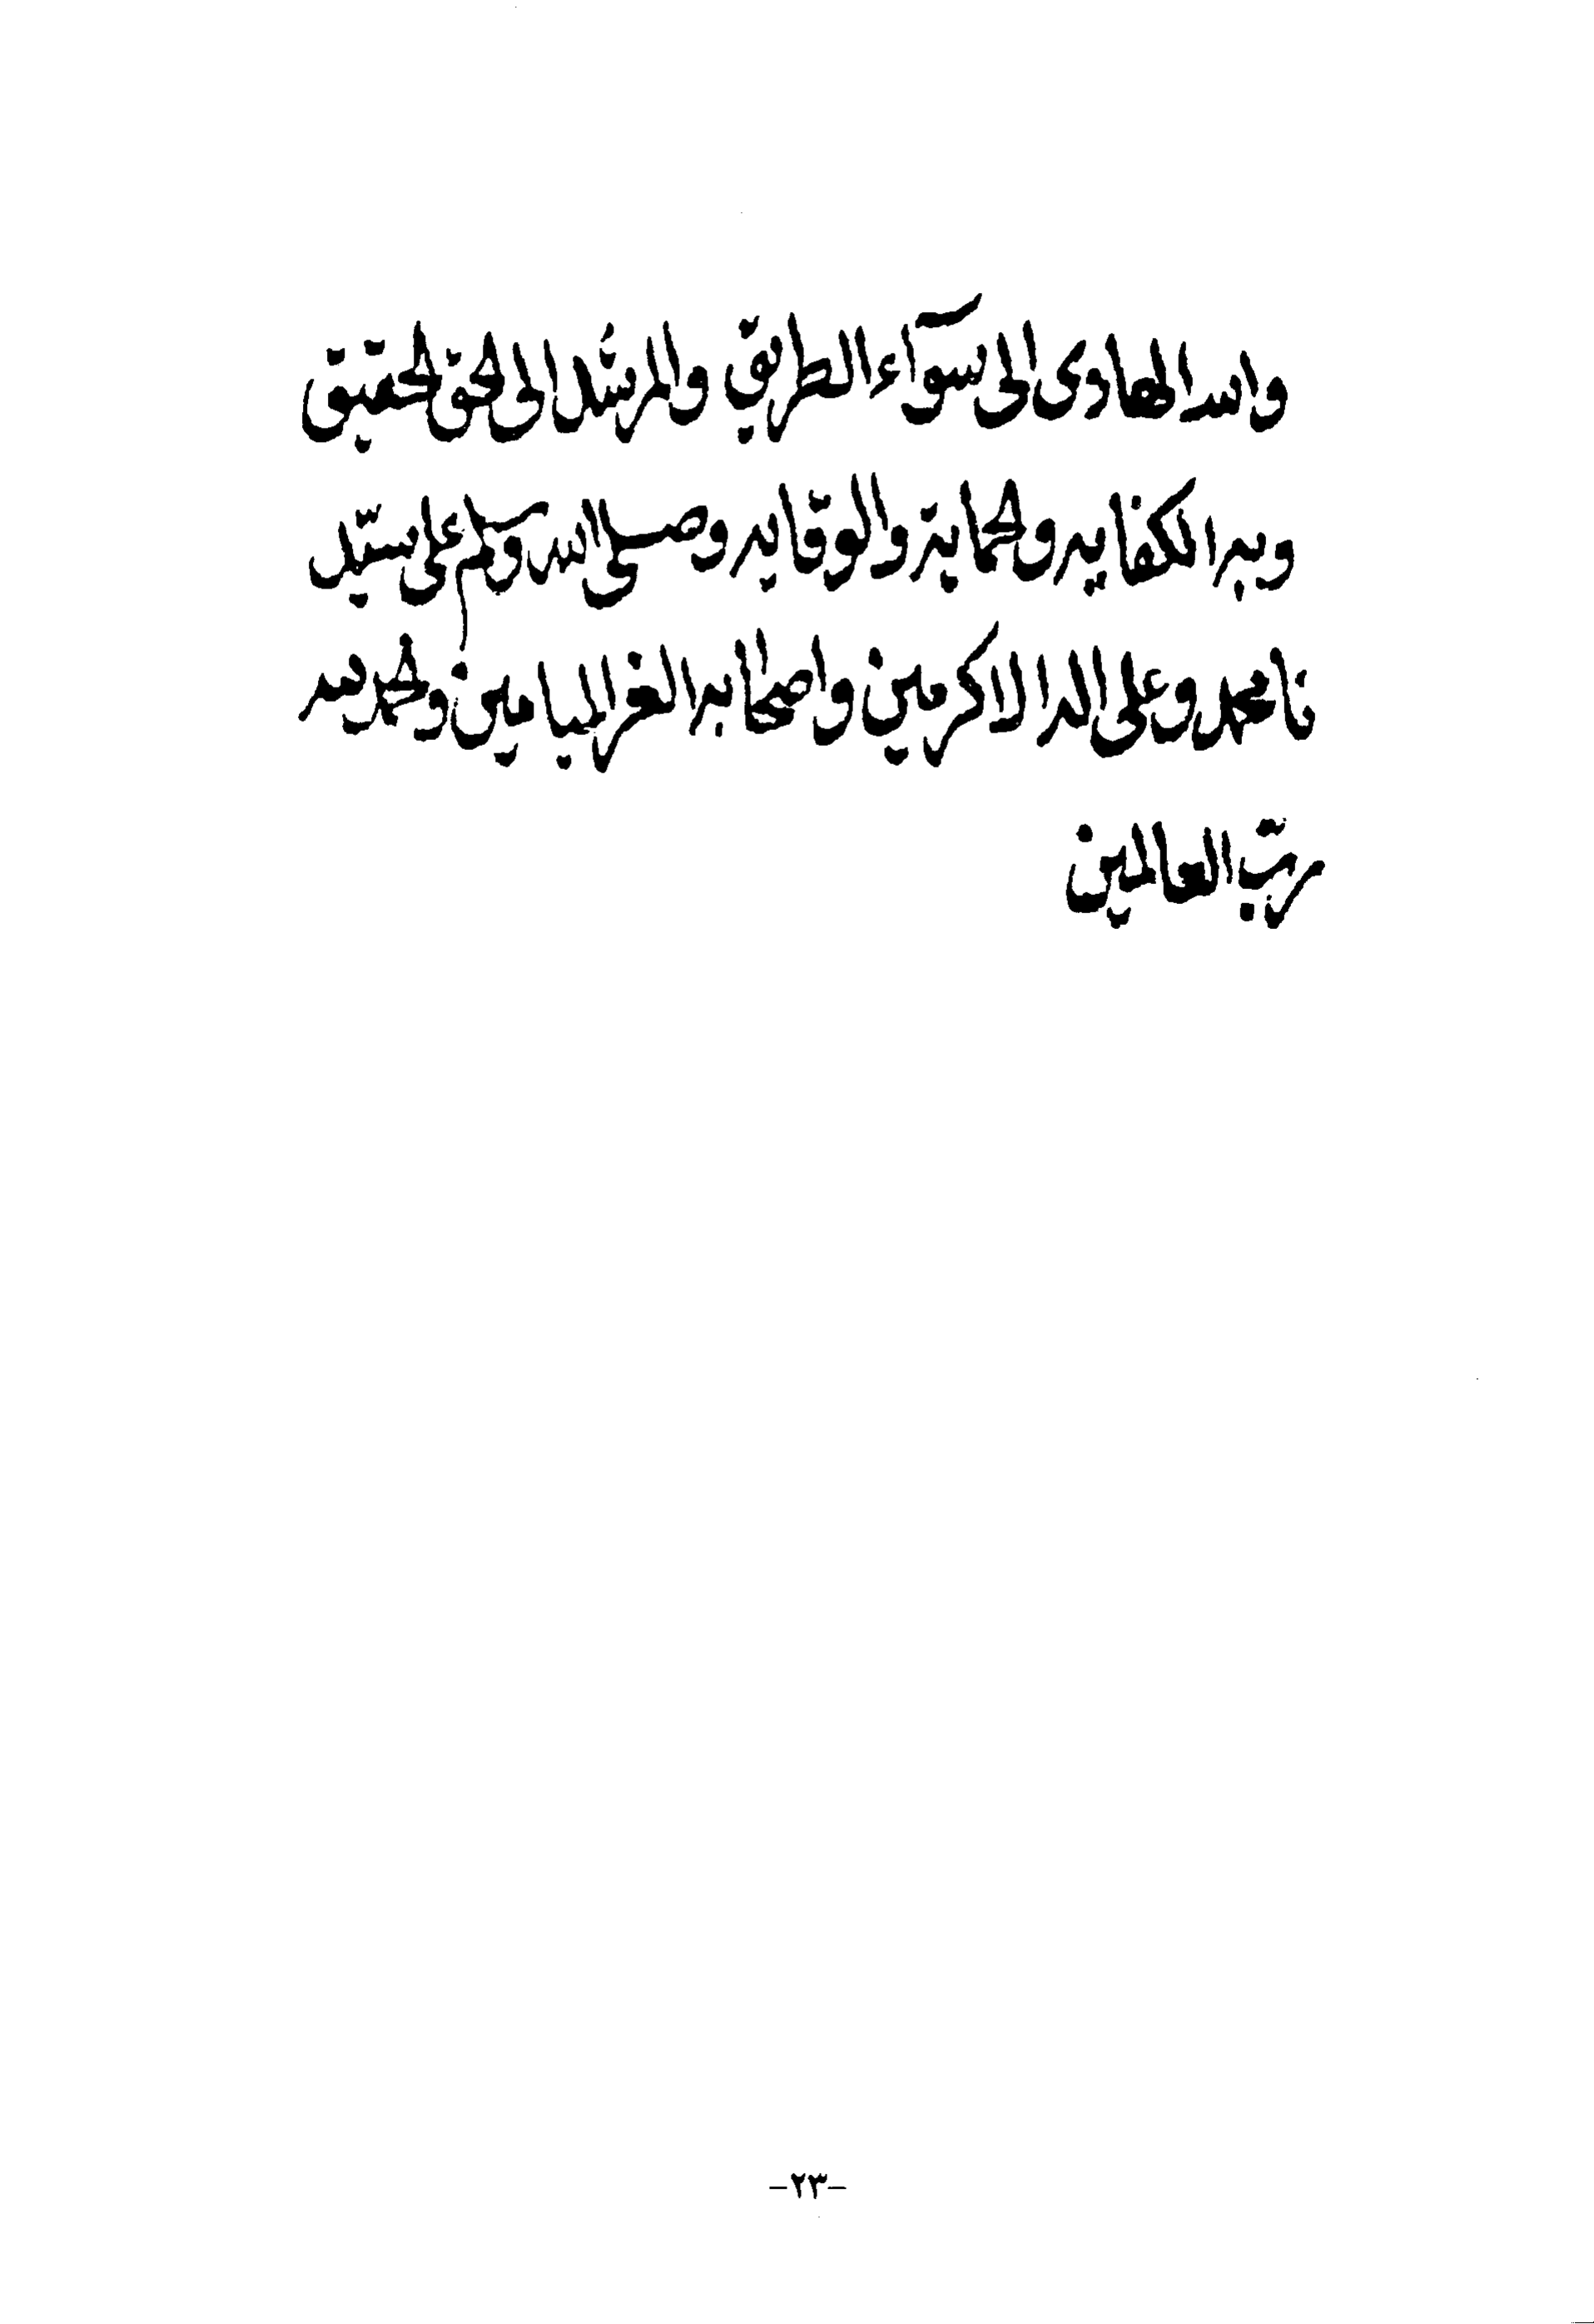 والله الهادى الى سوآء الطريق والمرشد الى الحق الحقيق
وبيده الكفاية والحماية والوقاية وصلى الله وسلم على سيد
نا محمد وعلى اله الاكرمين واصحابه الغر الميامين والحمد لله
رب العالمين
-٢٣-